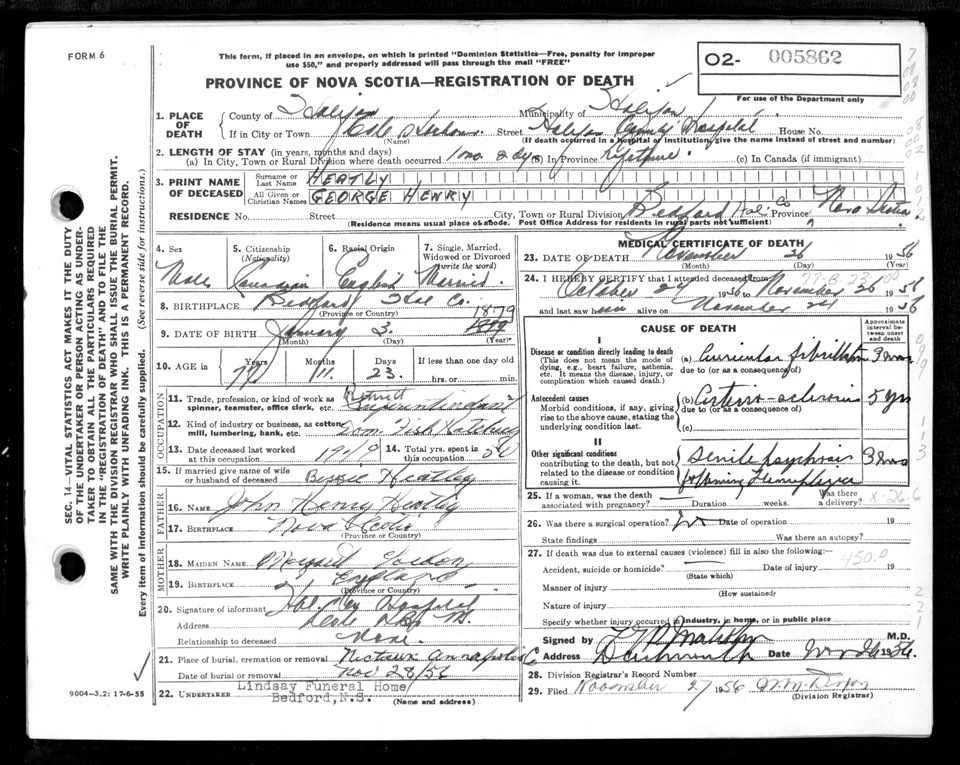 FORM 6
This form, if placed in an envelope, on which is printed "Dominion Statistics—Free, penalty for improper
use $50," and properly addressed will pass through the mail "FREE"
PROVINCE OF NOVA SCOTIA—REGISTRATION OF DEATH
02- 005862
For use of the Department only
1. PLACE OF DEATH
County of Halifax Municipality of Halifax
If in City or Town Cole Harbour Street Halifax County Hospital House No.
(Name) (If death occurred in a hospital or institution, give the name instead of street and number)
2. LENGTH OF STAY (in years, months and days)
(a) In City, Town or Rural Division where death occurred 1 mo 2 dys (b) In Province Lifetime. (c) In Canada (if immigrant)
3. PRINT NAME OF DECEASED
Surname or Last Name HEATLY
All Given or Christian Names GEORGE HENRY
RESIDENCE No. Street City, Town or Rural Division Bedford Hal. Co Province Nova Scotia
(Residence means usual place of abode. Post Office Address for residents in rural parts not sufficient)
4. Sex Male
5. Citizenship (Nationality) Canadian
6. Racial Origin English
7. Single, Married, Widowed or Divorced (write the word) Married
8. BIRTHPLACE Bedford Hal Co.
(Province or County)
9. DATE OF BIRTH January 3. 1879
(Month) (Day) (Year)
10. AGE in Years Months 11. Days 23. If less than one day old hrs. or min.
11. Trade, profession, or kind of work as spinner, teamster, office clerk, etc. Retired Superintendent
12. Kind of industry or business, as cotton mill, lumbering, bank, etc. Dom. Fish Hatchery
13. Date deceased last worked at this occupation
14. Total yrs. spent in this occupation
15. If married give name of wife or husband of deceased Bessie Heatley
FATHER
16. NAME John Henry Heatly
17. BIRTHPLACE Nova Scotia
(Province or Country)
MOTHER
18. MAIDEN NAME Margaret
19. BIRTHPLACE England
(Province or Country)
20. Signature of informant Hal. Cty Hospital
Address
Relationship to deceased None.
21. Place of burial, cremation or removal Nictaux Annapolis Co
Date of burial or removal Nov 28/56
22. UNDERTAKER Lindsay Funeral Home
Bedford, N.S.
(Name and address)
9004—3.2: 17-6-55
MEDICAL CERTIFICATE OF DEATH
23. DATE OF DEATH November 26 1956
(Month) (Day) (Year)
24. I HEREBY CERTIFY that I attended deceased from
October 24 1956 to November 26 1956
and last saw him alive on November 24 1956
CAUSE OF DEATH
Approximate interval between onset and death
I
Disease or condition directly leading to death
(This does not mean the mode of dying, e.g., heart failure, asthenia, etc. It means the disease, injury, or complication which caused death.)
(a) Auricular fibrillation
due to (or as a consequence of)
Antecedent causes
Morbid conditions, if any, giving rise to the above cause, stating the underlying condition last.
(b) Arterio-sclerosis 5 yrs
due to (or as a consequence of)
(c)
II
Other significant conditions
contributing to the death, but not related to the disease or condition causing it.
Senile psychosis
following Hemiplegia
25. If a woman, was the death associated with pregnancy? Duration weeks. Was there a delivery?
26. Was there a surgical operation? No Date of operation 19
State findings Was there an autopsy?
27. If death was due to external causes (violence) fill in also the following:—
450.0
Accident, suicide or homicide? Date of injury 19
(State which)
Manner of injury
(How sustained)
Nature of injury
Specify whether injury occurred in industry, in home, or in public place
Signed by M.D.
Address Dartmouth Date Nov 26 1956.
28. Division Registrar's Record Number
29. Filed November 27 1956
(Division Registrar)
SEC. 14—VITAL STATISTICS ACT MAKES IT THE DUTY
OF THE UNDERTAKER OR PERSON ACTING AS UNDER-
TAKER TO OBTAIN ALL THE PARTICULARS REQUIRED
IN THE "REGISTRATION OF DEATH" AND TO FILE THE
SAME WITH THE DIVISION REGISTRAR WHO SHALL ISSUE THE BURIAL PERMIT.
WRITE PLAINLY WITH UNFADING INK. THIS IS A PERMANENT RECORD.
Every item of information should be carefully supplied. (See reverse side for instructions.)